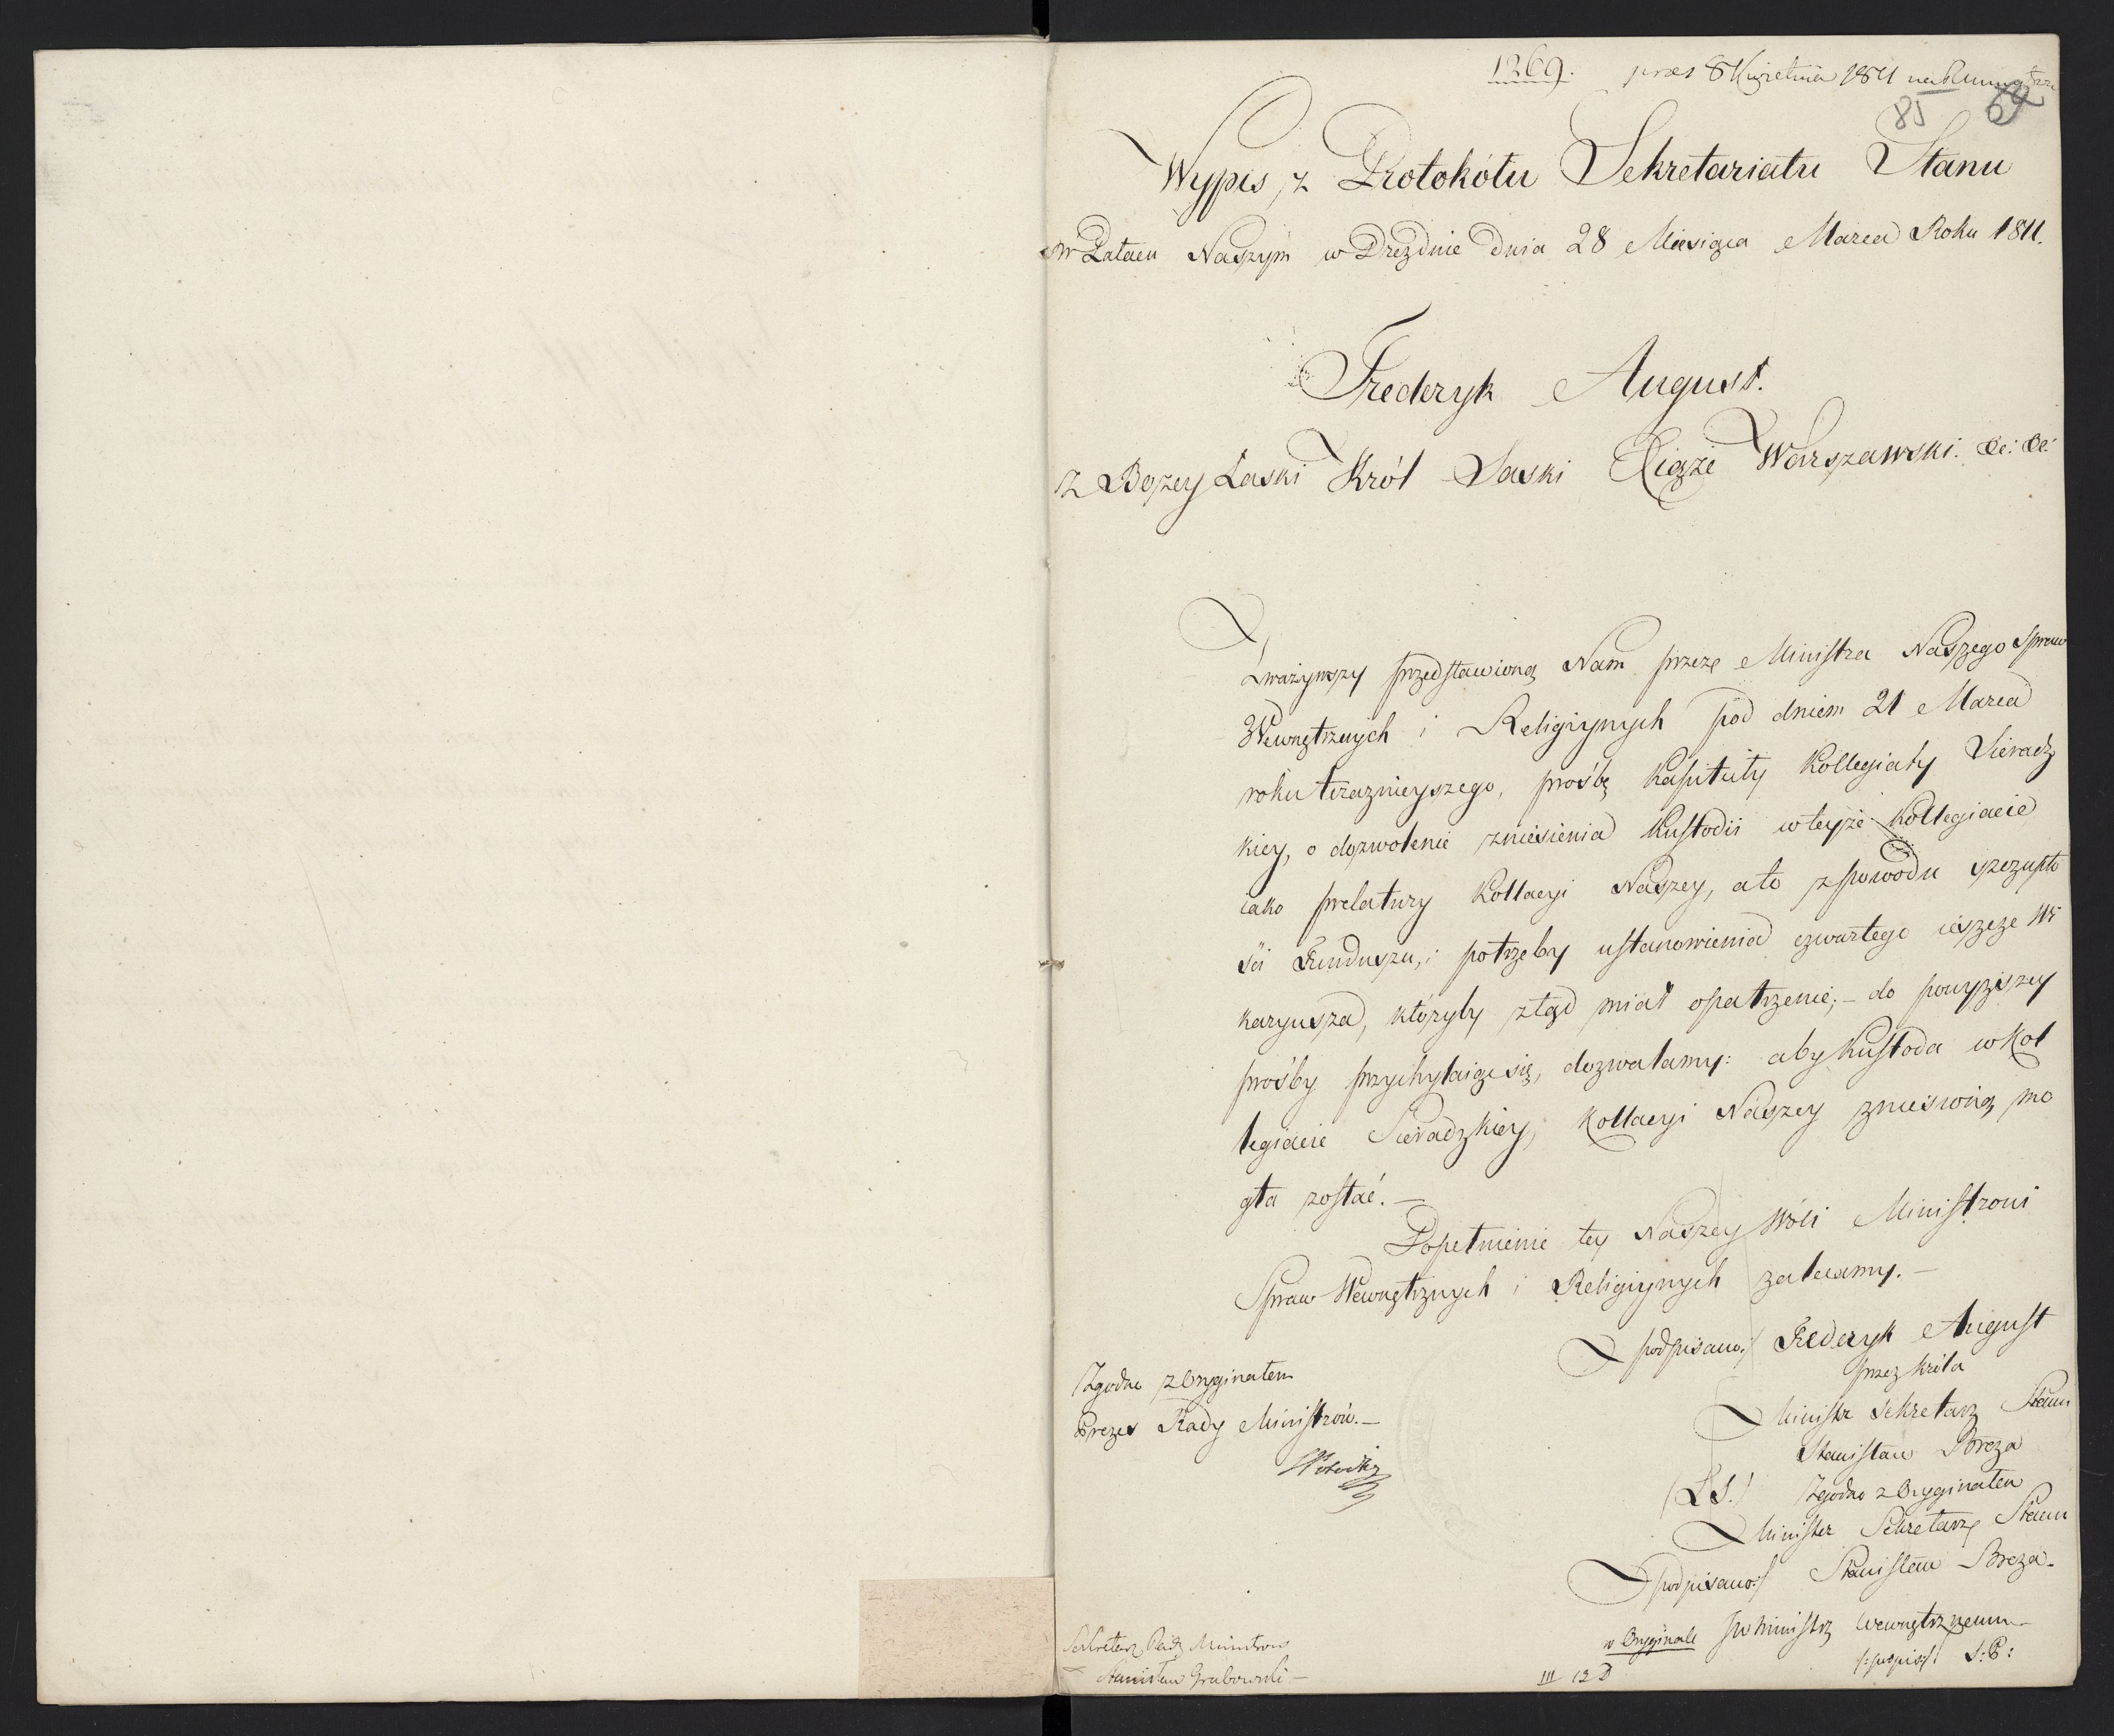 1269. praes 8 Kwietnia 1811
85 62
Wypis z Protokółu Sekretariatu Stanu
w Pałacu Naszym w Dreźnie Dnia 28 Miesiąca Marca Roku 1811.
Frederyk August.
z Bożey Łaski Król Saski Xiąże Warszawski. &c: &c:
Zważywszy przedstawioną Nam przez Ministra Naszego Spraw
Wewnętrznych i Religiynych pod dniem 21 Marca
roku teraznieyszego, prośbę Kapituły Kollegiaty Sieradz
kiey, o dozwolenie zniesienia Kustodii w teyże Kollegiacie
iako prelatury Kollacyi Naszey, a to z powodu szczupło
ści Funduszu, i potrzeby ustanowienia czwartego ieszcze Wi
karyusza, któryby ztąd miał opatrzenie; – do powyższey
prośby przychylaiąc się, dozwalamy: aby Kustoda w Kol
legiacie Sieradzkiey, Kollacyi Naszey zniesioną mo
gła zostać. –
Dopełnienie tey Naszey Woli Ministrowi
Spraw Wewnętrznych i Religiynych zalecamy. –
podpisano:/ Frederyk August
przez Króla
Minister Sekretarz Stanu
Stanisław Breza
(L.S.) Zgodno z Oryginałem
Minister Sekretarz Stanu
podpisano:/ Stanisław Breza.
Zgodno z Oryginałem
Prezes Rady Ministrów. –
Potocki
w Oryginale JW Ministrz Wewnętrznemu
S: P:
Sekretarz Rady Ministrow
Stanisław Grabowski –
III 12 D